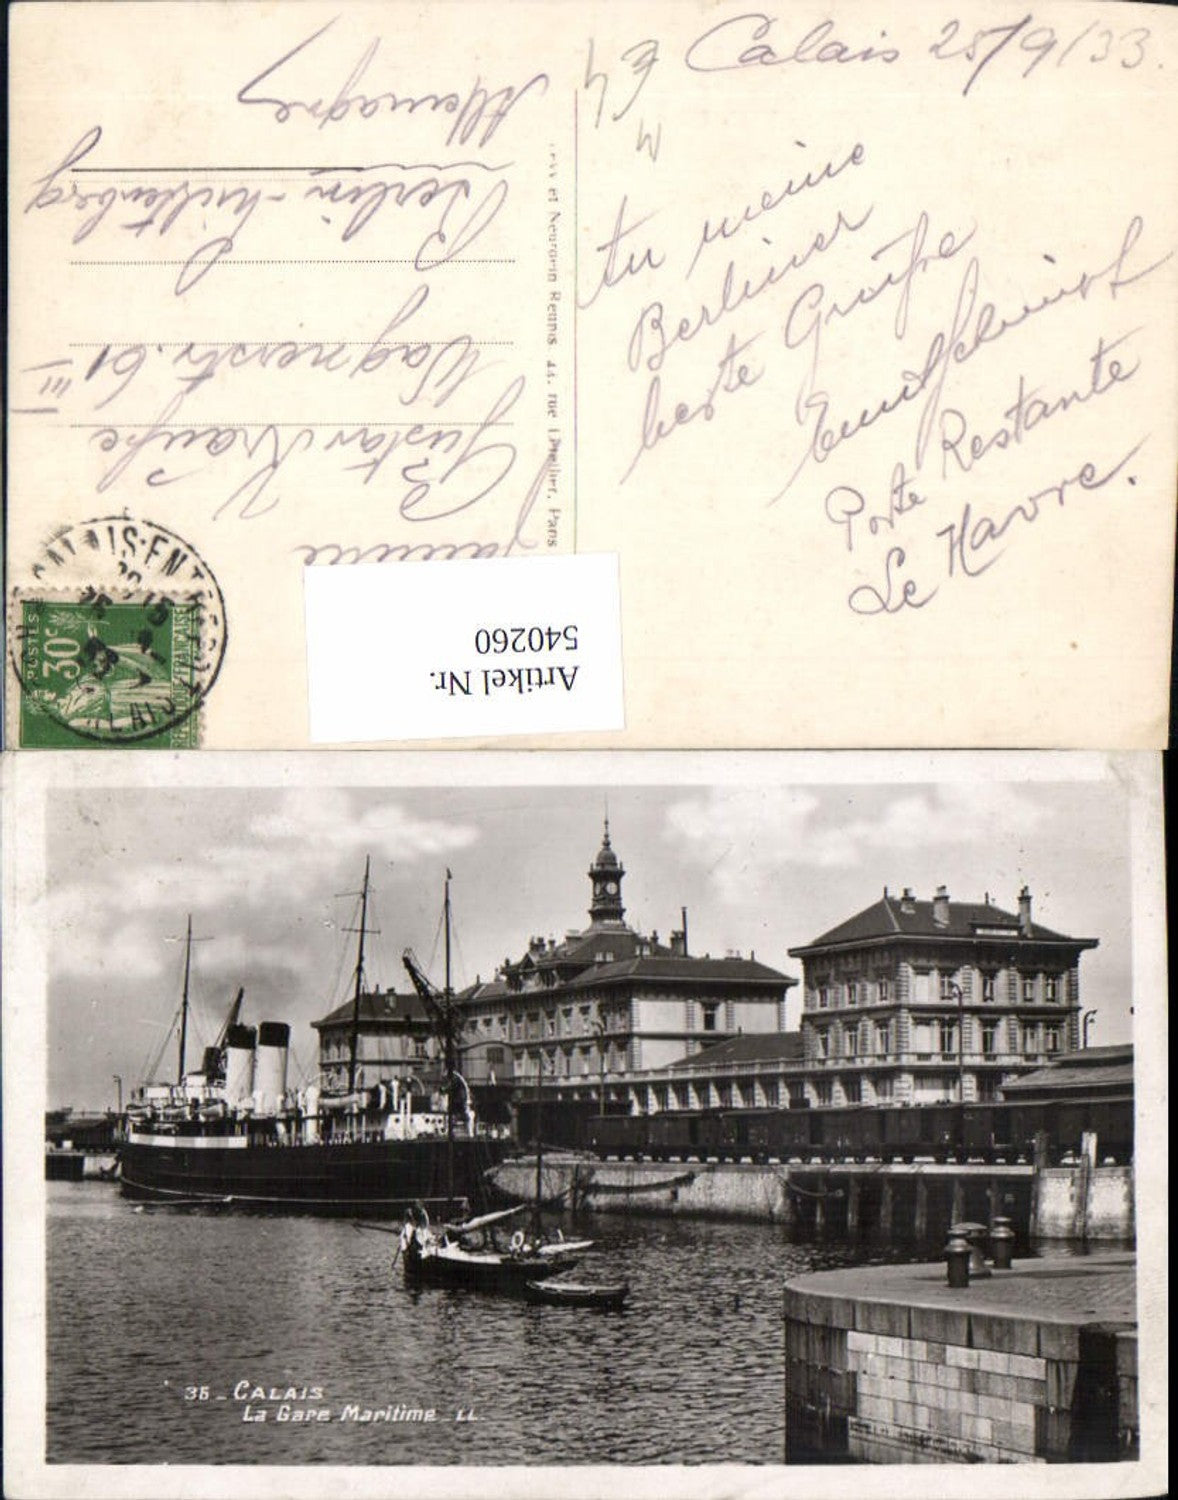 Calais 25/9/33.
An meine
Berliner
beste Grüße
Poste Restante
Le Havre.
Familie
Gustav Krause
Wagnerstr. 61 III
Berlin-Lichtenberg
Allemagne
Lévy et Neurdein Réunis 44, rue Letellier, Paris
CALAIS-ENTREPOT
POSTES
30c
Artikel Nr.
540260
35 - CALAIS
La Gare Maritime LL